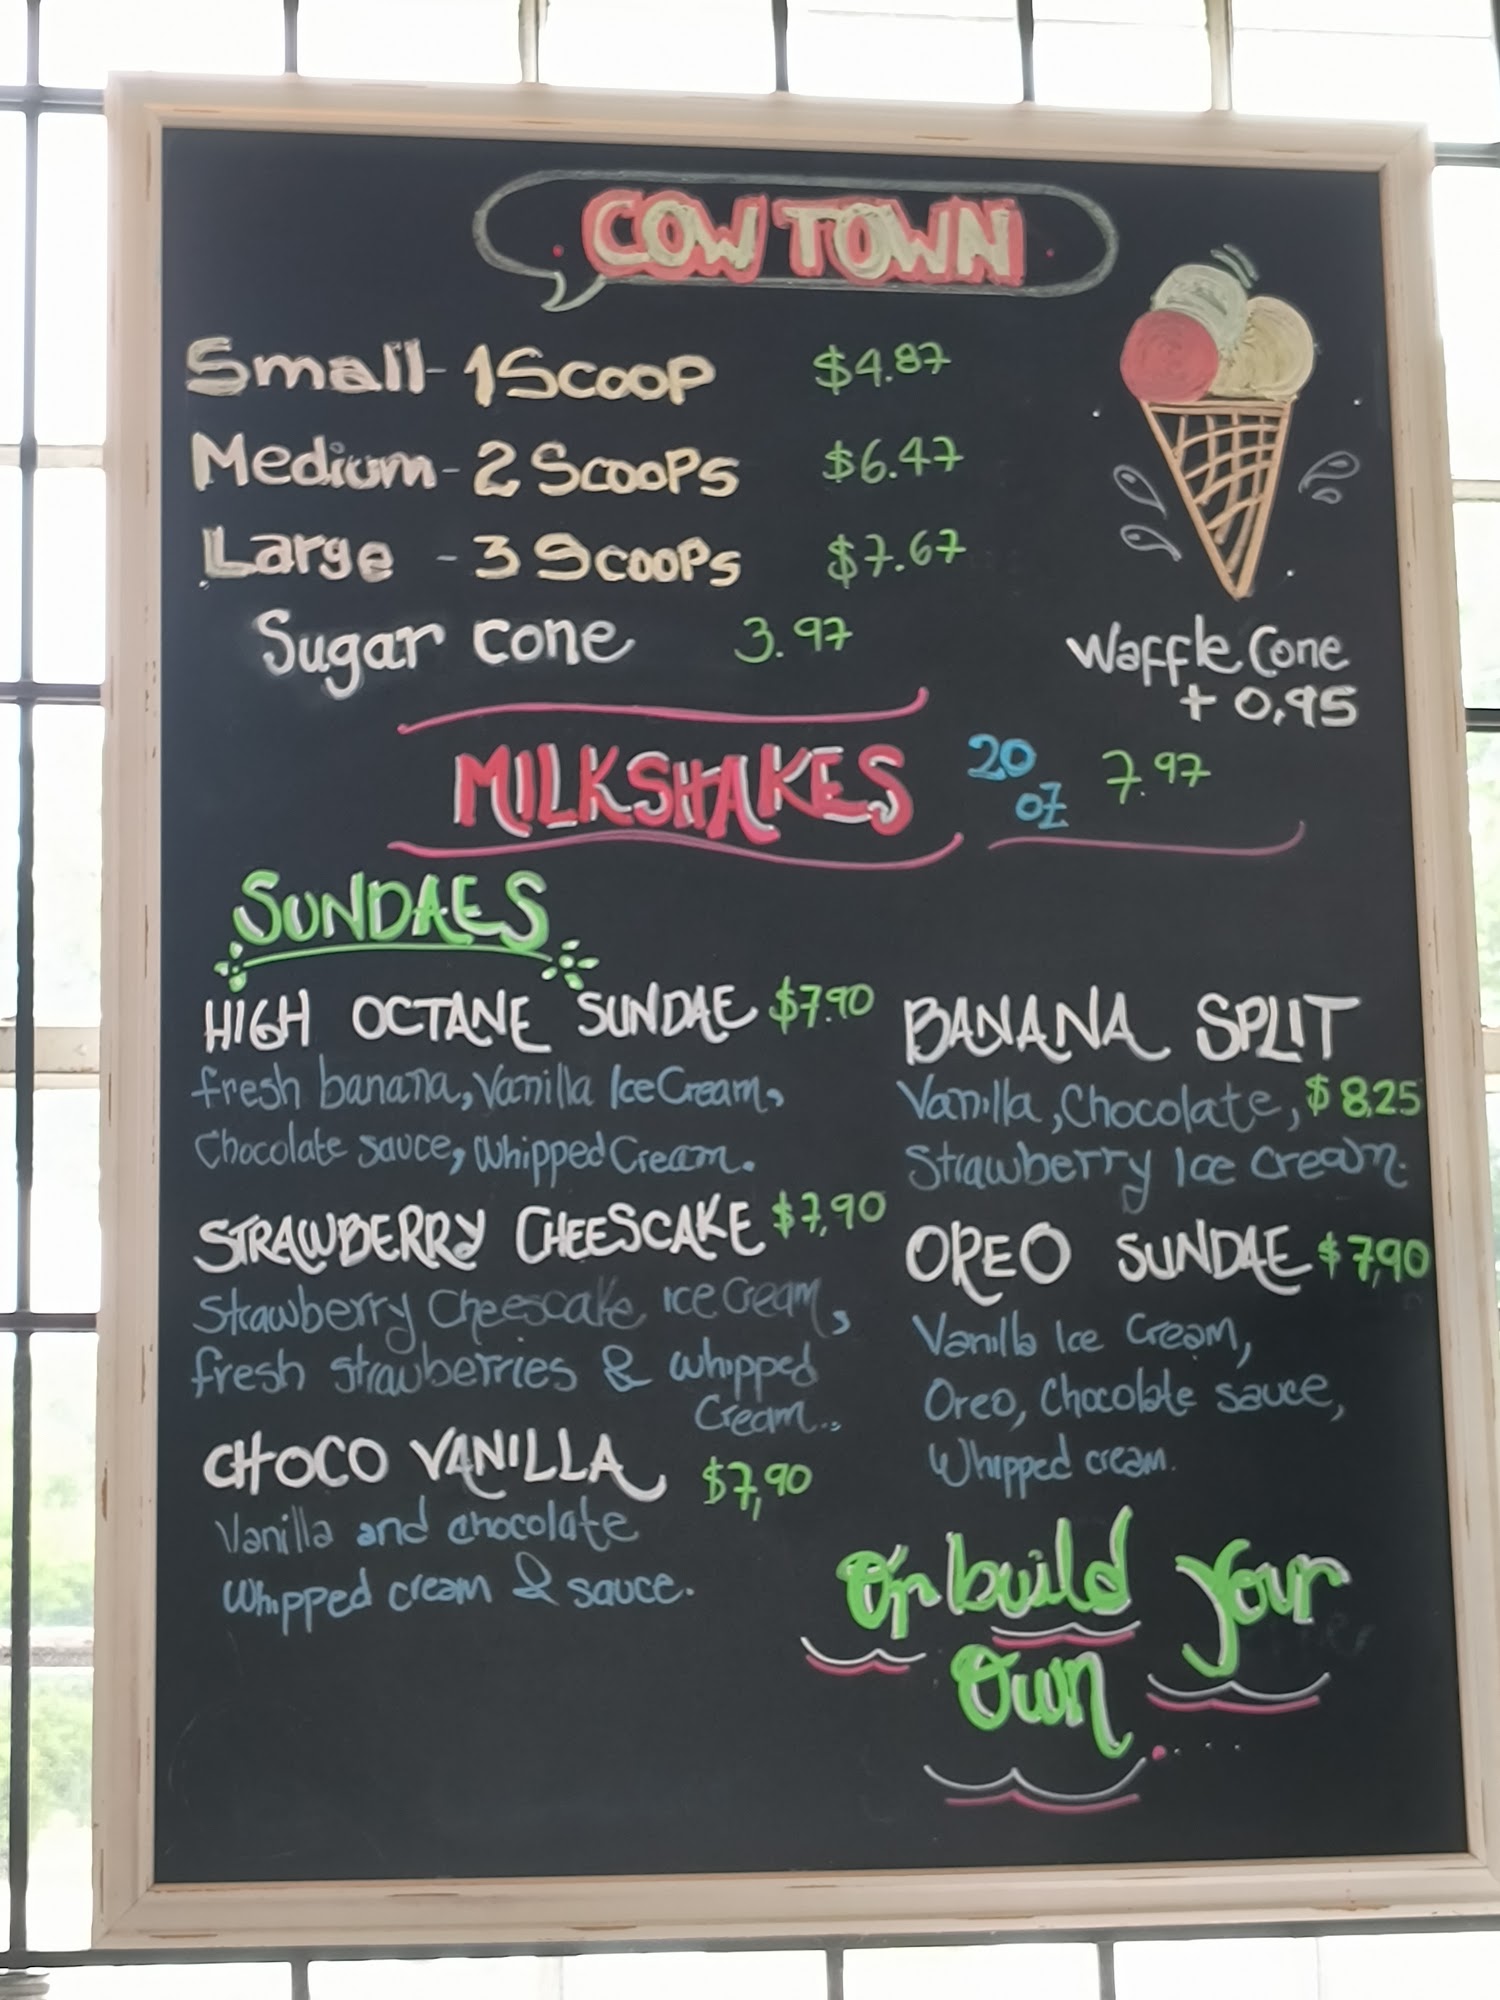 COW TOWN
Small - 1 Scoop $4.87
Medium - 2 Scoops $6.47
Large - 3 Scoops $7.67
Sugar cone 3.97
Waffle Cone
+ 0,95
MILKSHAKES 20 oz 7.97
SUNDAES
HIGH OCTANE SUNDAE $7.90
fresh banana, Vanilla Ice Cream,
Chocolate sauce, Whipped Cream.
STRAWBERRY CHEESCAKE $7,90
Strawberry Cheescake ice cream,
fresh strawberries & whipped
Cream..
CHOCO VANILLA $7,90
Vanilla and chocolate
Whipped cream & sauce.
BANANA SPLIT
Vanilla, Chocolate, $8,25
Strawberry Ice Cream.
OREO SUNDAE $7,90
Vanilla Ice Cream,
Oreo, Chocolate sauce,
Whipped cream.
Or build your
Own